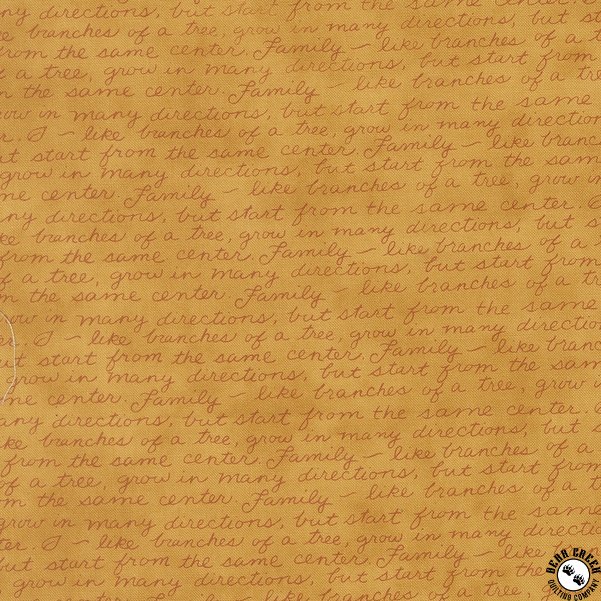 ny directions, but start from the same center.
e branches of a tree, grow in many directions, but st
from the same center. Family – like branches of a t
f a tree, grow in many directions, but start from
n the same center. Family – like branches of a tre
row in many directions, but start from the same
r. – like branches of a tree, grow in many direction
ut start from the same center. Family – like branc
grow in many directions, but start from the sam
me center. Family – like branches of a tree, grow in
ny directions, but start from the same center.
ke branches of a tree, grow in many directions, but s
from the same center. Family – like branches of a t
f a tree, grow in many directions, but start from
m the same center. Family – like branches of a tr
row in many directions, but start from the same
er. – like branches of a tree, grow in many directio
ut start from the same center. Family – like branc
grow in many directions, but start from the sam
me center. Family – like branches of a tree, grow i
any directions, but start from the same center.
ke branches of a tree, grow in many directions, but s
from the same center. Family – like branches of a
of a tree, grow in many directions, but start from
m the same center. Family – like branches of a t
grow in many directions, but start from the same
ter. – like branches of a tree, grow in many directio
but start from the same center. Family – like
grow in many directions, but start from the
me center. Family – like branches of a tree,
BEAR CREEK
QUILTING COMPANY